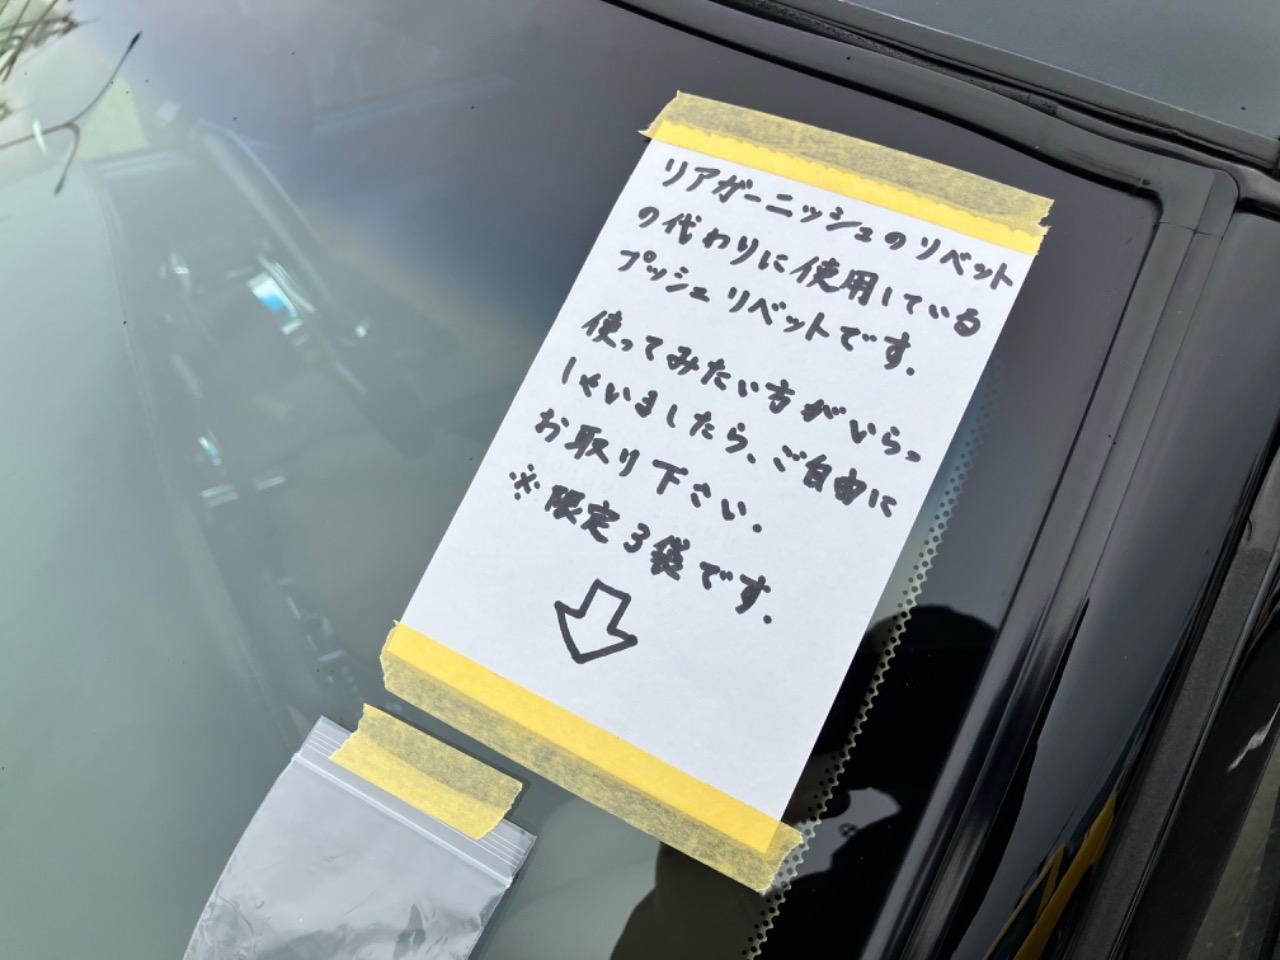 リアガーニッシュのリベット
の代わりに使用している
プッシュリベットです.
使ってみたい方がいらっ
しゃいましたら、ご自由に
お取り下さい.
※限定3袋です.